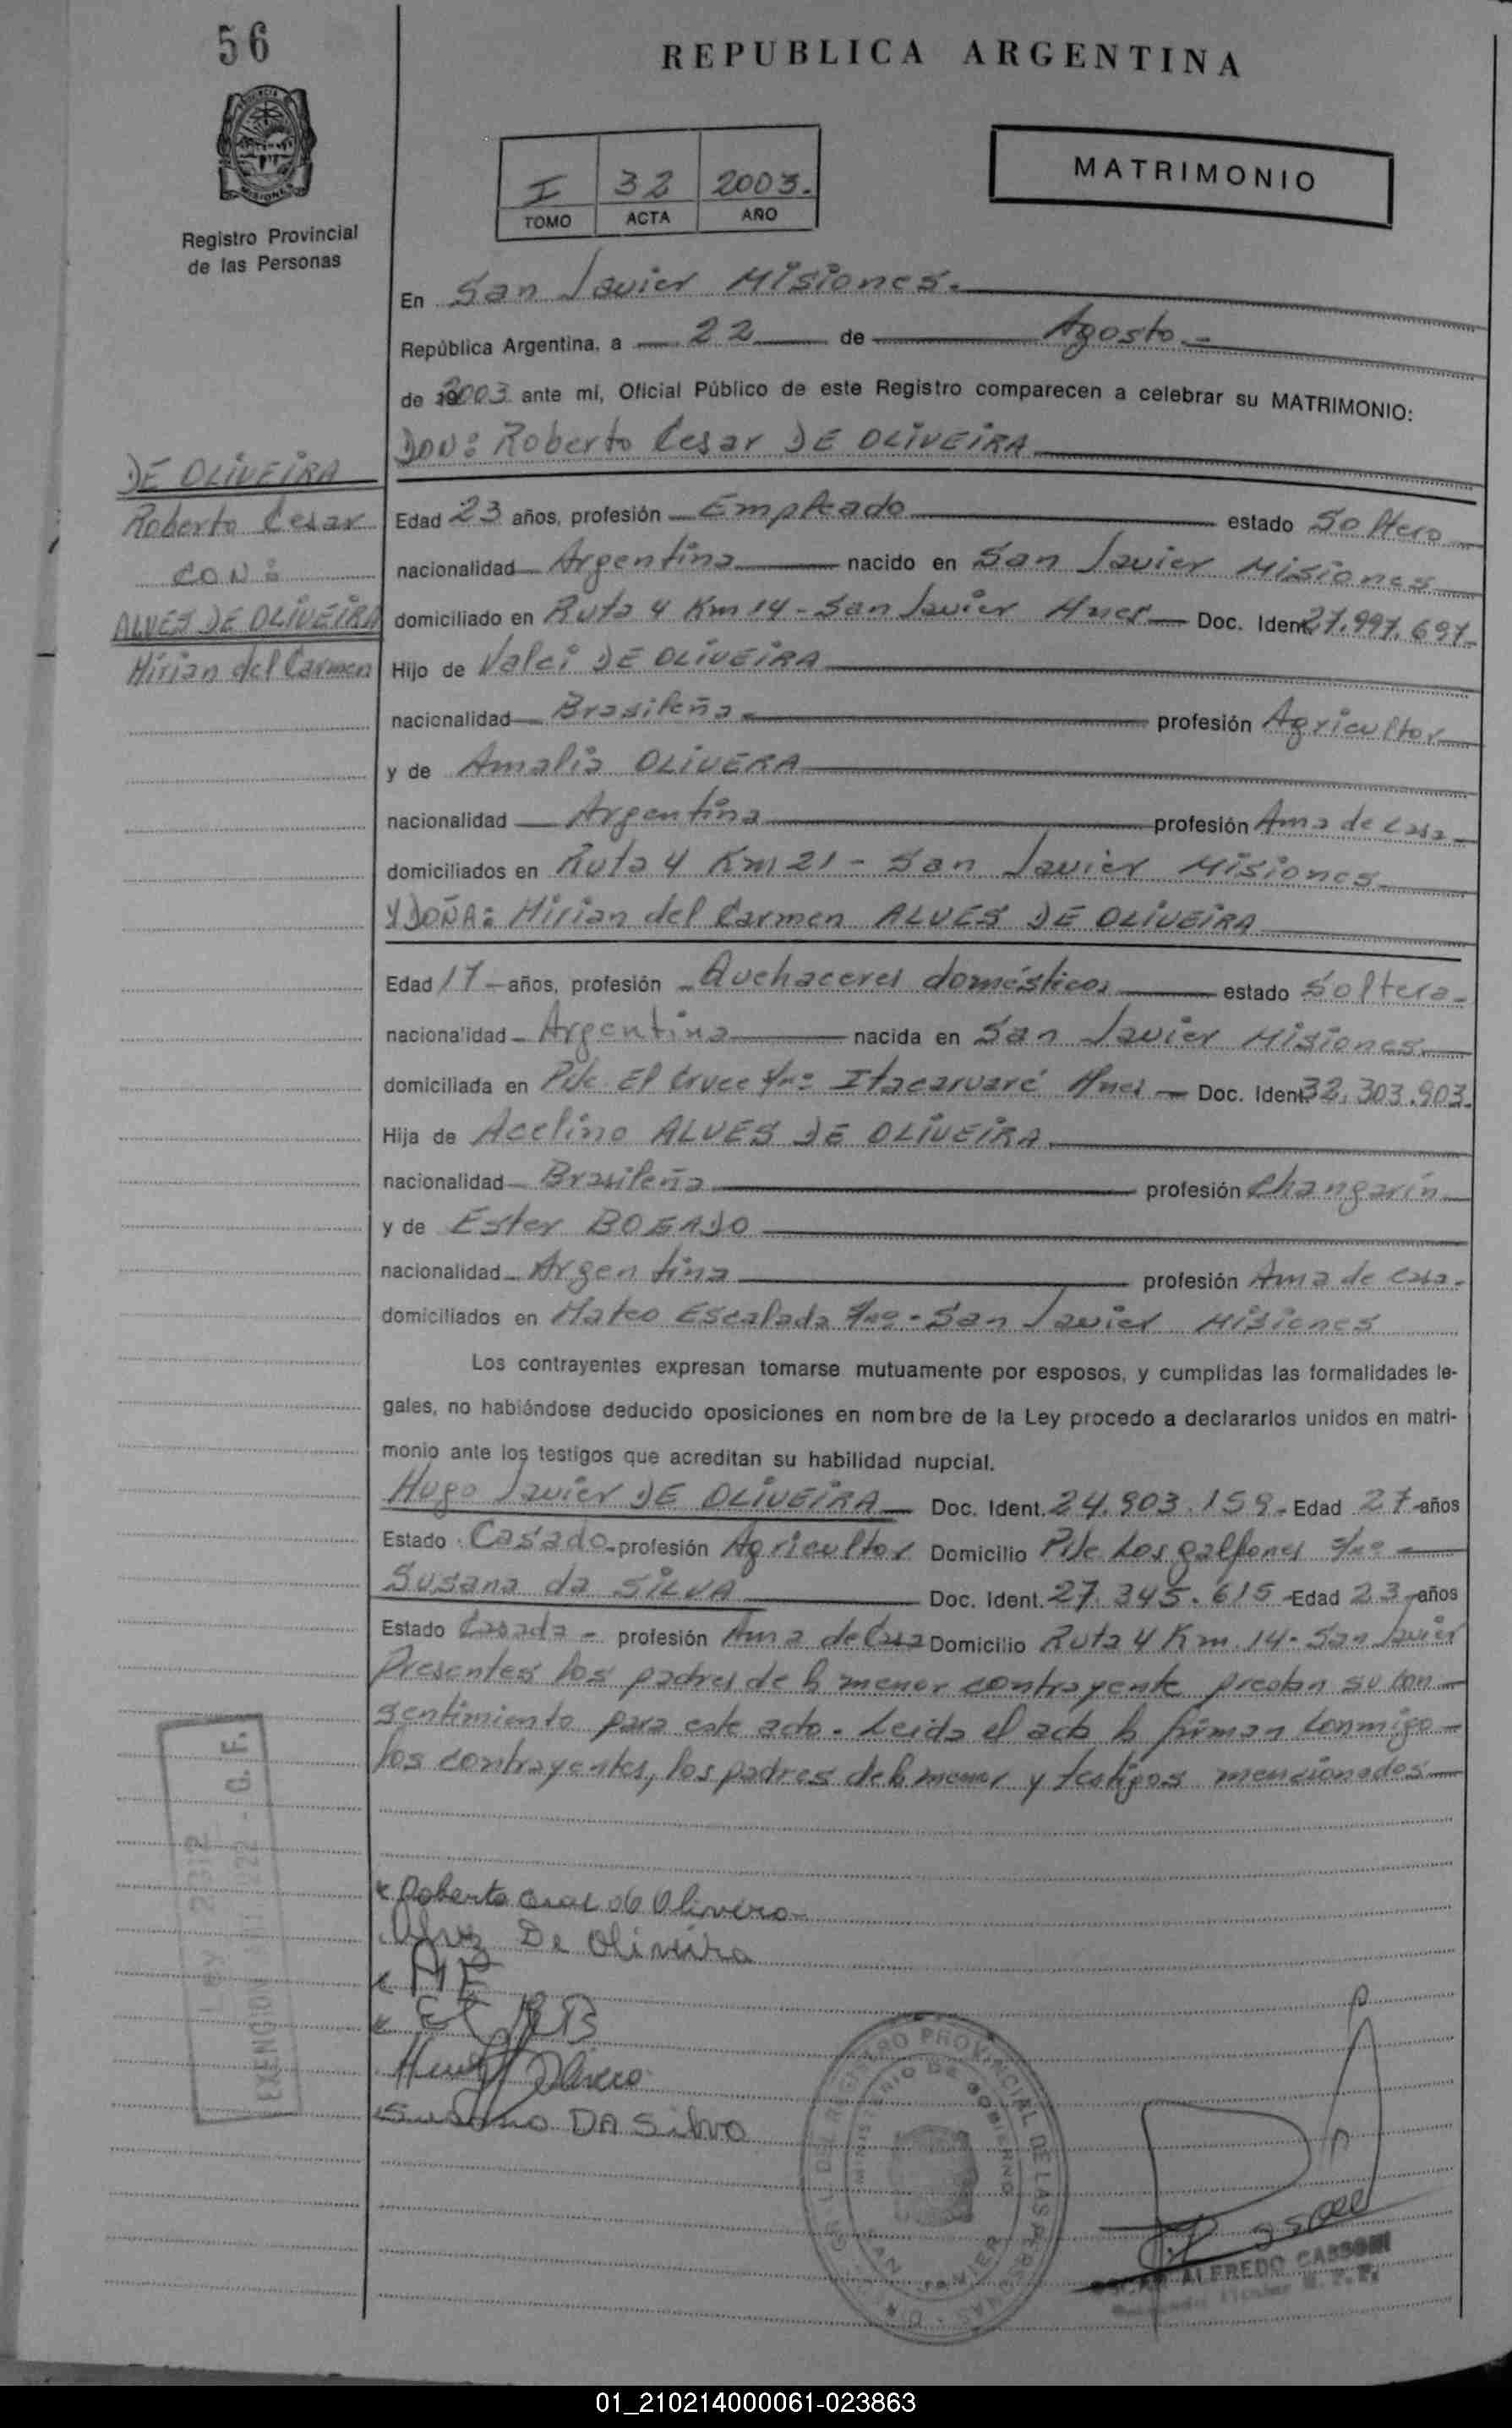 56
REPUBLICA ARGENTINA
MATRIMONIO
I 32 2003.
TOMO ACTA AÑO
Registro Provincial
de las Personas
En San Javier Misiones.
República Argentina, a 22 de Agosto
de 2003 ante mi, Oficial Público de este Registro comparecen a celebrar su MATRIMONIO:
DON: Roberto Cesar DE OLIVEIRA
DE OLIVEIRA
Roberto Cesar
CON:
ALVES DE OLIVEIRA
Mirian del Carmen
Edad 23 años, profesión Empleado estado Soltero
nacionalidad Argentina nacido en San Javier Misiones
domiciliado en Ruta 4 Km 14 - San Javier Mnes Doc. Ident. 27.997.697
Hijo de Valci DE OLIVEIRA
nacionalidad Brasileña profesión Agricultor
y de Amalia OLIVERA
nacionalidad Argentina profesión Ama de casa
domiciliados en Ruta 4 Km 21 - San Javier Misiones
Y DOÑA: Mirian del Carmen ALVES DE OLIVEIRA
Edad 17 años, profesión Quehaceres domésticos estado Soltera
nacionalidad Argentina nacida en San Javier Misiones
domiciliada en Pje El Cruce s/nº Itacaruaré Mnes Doc. Ident. 32.303.903.
Hija de Acelino ALVES DE OLIVEIRA
nacionalidad Brasileña profesión Changarín
y de Ester BOGADO
nacionalidad Argentina profesión Ama de casa.
domiciliados en Mateo Escalada s/nº - San Javier Misiones
Los contrayentes expresan tomarse mutuamente por esposos, y cumplidas las formalidades le-
gales, no habiéndose deducido oposiciones en nombre de la Ley procedo a declararlos unidos en matri-
monio ante los testigos que acreditan su habilidad nupcial.
Hugo Javier DE OLIVEIRA Doc. Ident. 24.903.159 - Edad 27 años
Estado Casado profesión Agricultor Domicilio Pje Los galpones s/nº
Susana da SILVA Doc. Ident. 27.345.615 Edad 23 años
Estado Casada - profesión Ama de Casa Domicilio Ruta 4 Km 14 - San Javier
Presentes los padres de la menor contrayente prestan su con
sentimiento para este acto. Leida el acta la firman conmigo
los contrayentes, los padres de la menor y testigos mencionados
Ley 2312
Q.F.
Roberto Cesar de Olivera
De Oliveira
Olivera
Susana DA Silva
REGISTRO PROVINCIAL DE LAS PERSONAS
MINISTERIO DE GOBIERNO
SAN JAVIER
ALFREDO CASSONI
01_210214000061-023863